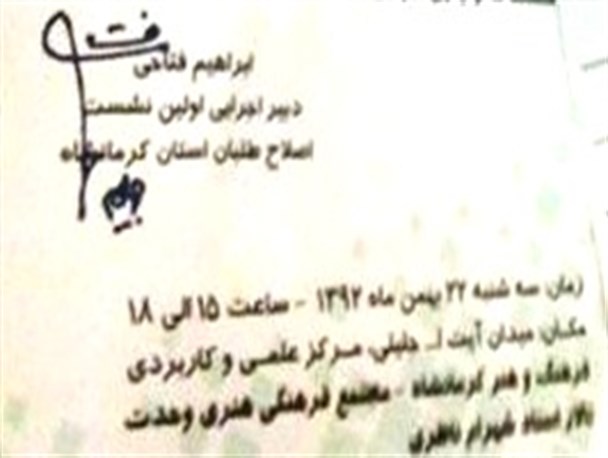 ابراهیم فتاحی
دبیر اجرایی اولین نشست
اصلاح طلبان استان کرمانشاه
زمان: سه شنبه ۲۲ بهمن ماه ۱۳۹۲ - ساعت ۱۵ الی ۱۸
مکان: میدان آیت ا... جلیلی، مرکز علمی و کاربردی
فرهنگ و هنر کرمانشاه - مجتمع فرهنگی هنری وحدت
تالار استاد شهرام ناظری